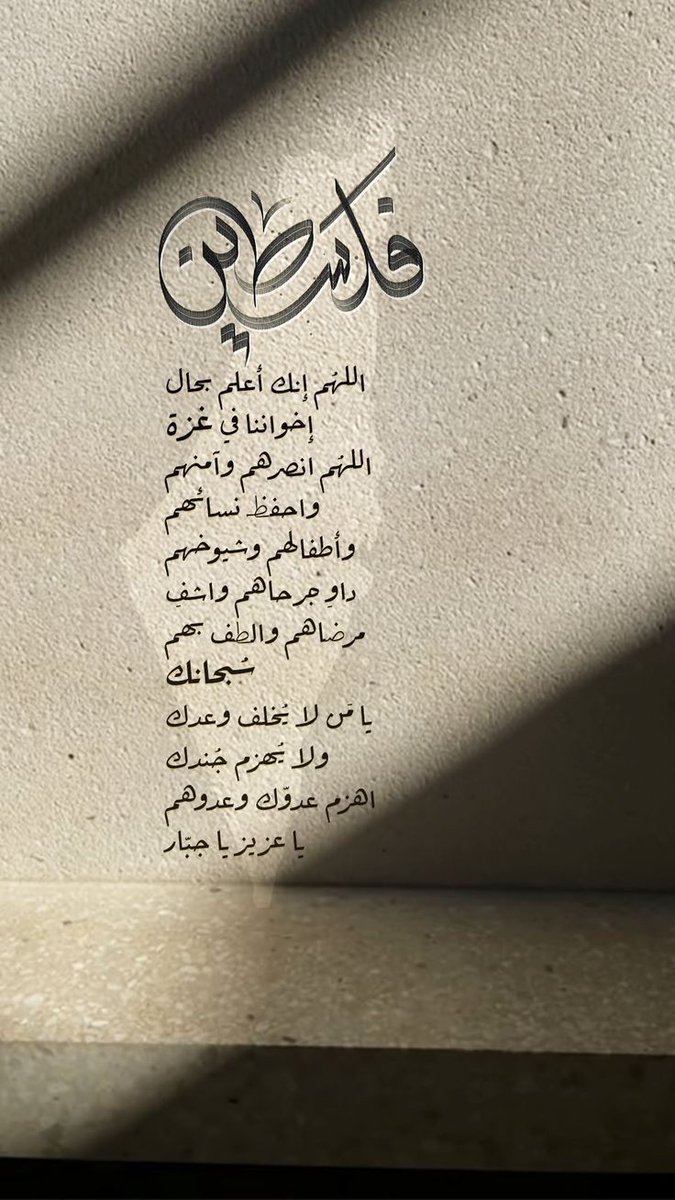 فلسطين
اللهُم إنك أعلم بحال
إخواننا في غزة
اللهُم انصرهم وآمنهم
واحفظ نسائهم
وأطفالهم وشيوخهم
داوِ جرحاهم واشفِ
مرضاهم والطف بهم
سُبحانك
يا مَن لا يُخلف وعدك
ولا يُهزم جُندك
اهزم عدوّك وعدوهم
يا عزيز يا جبّار